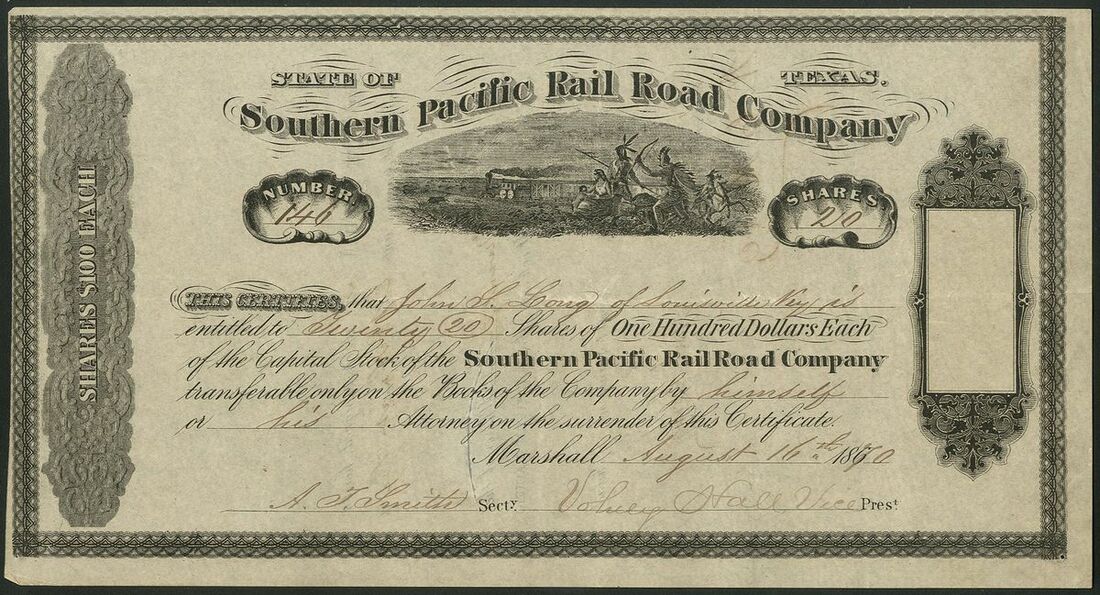 STATE OF TEXAS.
Southern Pacific Rail Road Company
NUMBER. 146
SHARES. 20
SHARES $100 EACH
THIS CERTIFIES, that John S. Long of Louisville Ky is
entitled to Twenty (20) Shares of One Hundred Dollars Each
of the Capital Stock of the Southern Pacific Rail Road Company
transferable only on the Books of the Company by himself
or his Attorney on the surrender of this Certificate.
Marshall August 16th 1860
A. T. Smith Secty. Volney Hall Vice Prest